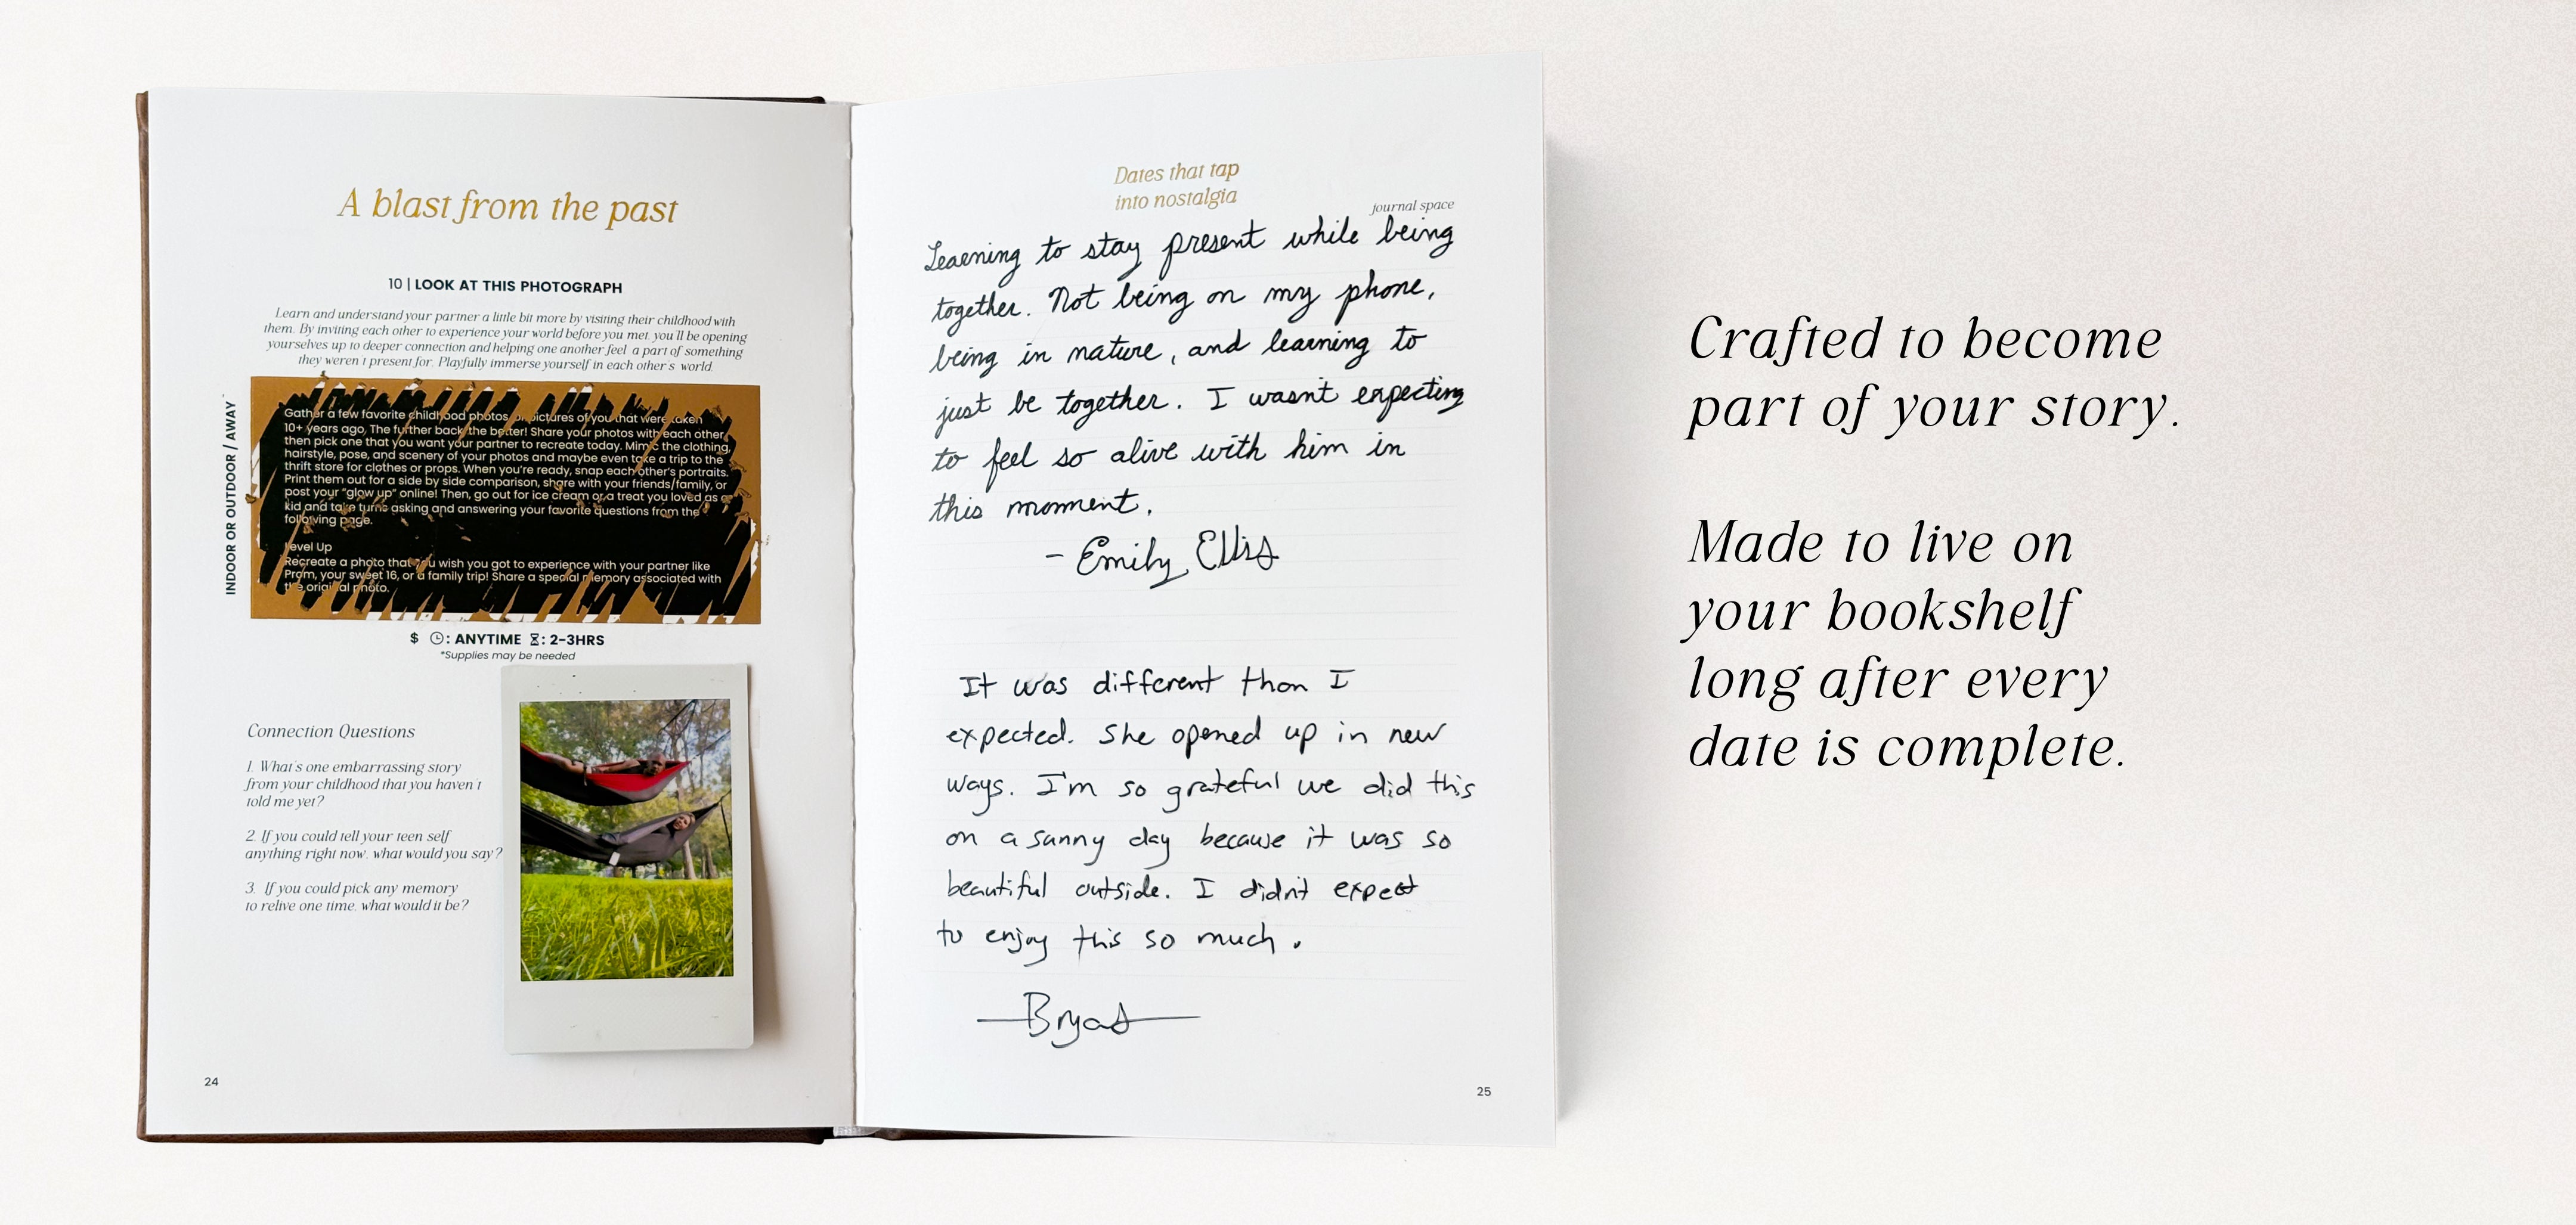 A blast from the past
10 | LOOK AT THIS PHOTOGRAPH
Learn and understand your partner a little bit more by visiting their childhood with
them. By inviting each other to experience your world before you met, you'll be opening
yourselves up to deeper connection and helping one another feel a part of something
they weren't present for. Playfully immerse yourself in each other's world.
INDOOR OR OUTDOOR / AWAY
Gather a few favorite childhood photos or pictures of you that were taken
10+ years ago. The further back the better! Share your photos with each other,
then pick one that you want your partner to recreate today. Mimic the clothing,
hairstyle, pose, and scenery of your photos and maybe even take a trip to the
thrift store for clothes or props. When you're ready, snap each other's portraits.
Print them out for a side by side comparison, share with your friends/family, or
post your "glow up" online! Then, go out for ice cream or a treat you loved as a
kid and take turns asking and answering your favorite questions from the
following page.
Level Up
Recreate a photo that you wish you got to experience with your partner like
Prom, your sweet 16, or a family trip! Share a special memory associated with
the original photo.
$ : ANYTIME : 2-3HRS
*Supplies may be needed
Connection Questions
1. What's one embarrassing story
from your childhood that you haven't
told me yet?
2. If you could tell your teen self
anything right now, what would you say?
3. If you could pick any memory
to relive one time, what would it be?
24
Dates that tap
into nostalgia
journal space
Learning to stay present while being
together. Not being on my phone,
being in nature, and learning to
just be together. I wasn't expecting
to feel so alive with him in
this moment.
- Emily Ellis
It was different than I
expected. She opened up in new
ways. I'm so grateful we did this
on a sunny day because it was so
beautiful outside. I didn't expect
to enjoy this so much.
25
Crafted to become
part of your story.
Made to live on
your bookshelf
long after every
date is complete.